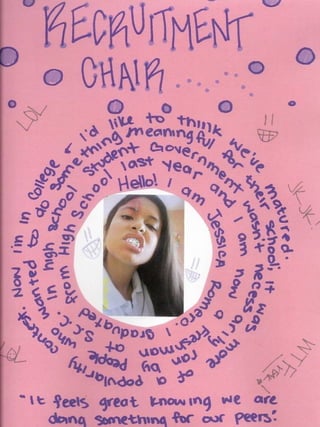 RECRUITMENT
CHAIR.......
LOL
JK JK!
LOL
WTF
Hello! I am Jessica Romero. I graduated from High School last year and I am now a Freshman at S.C. In high school Student Government wasn't necessarily ran by people who wanted to do something meaningful for their school; it was more of a popularity contest. Now I'm in College & I'd like to think we've matured.
"It feels great knowing we are
doing something for our peers."